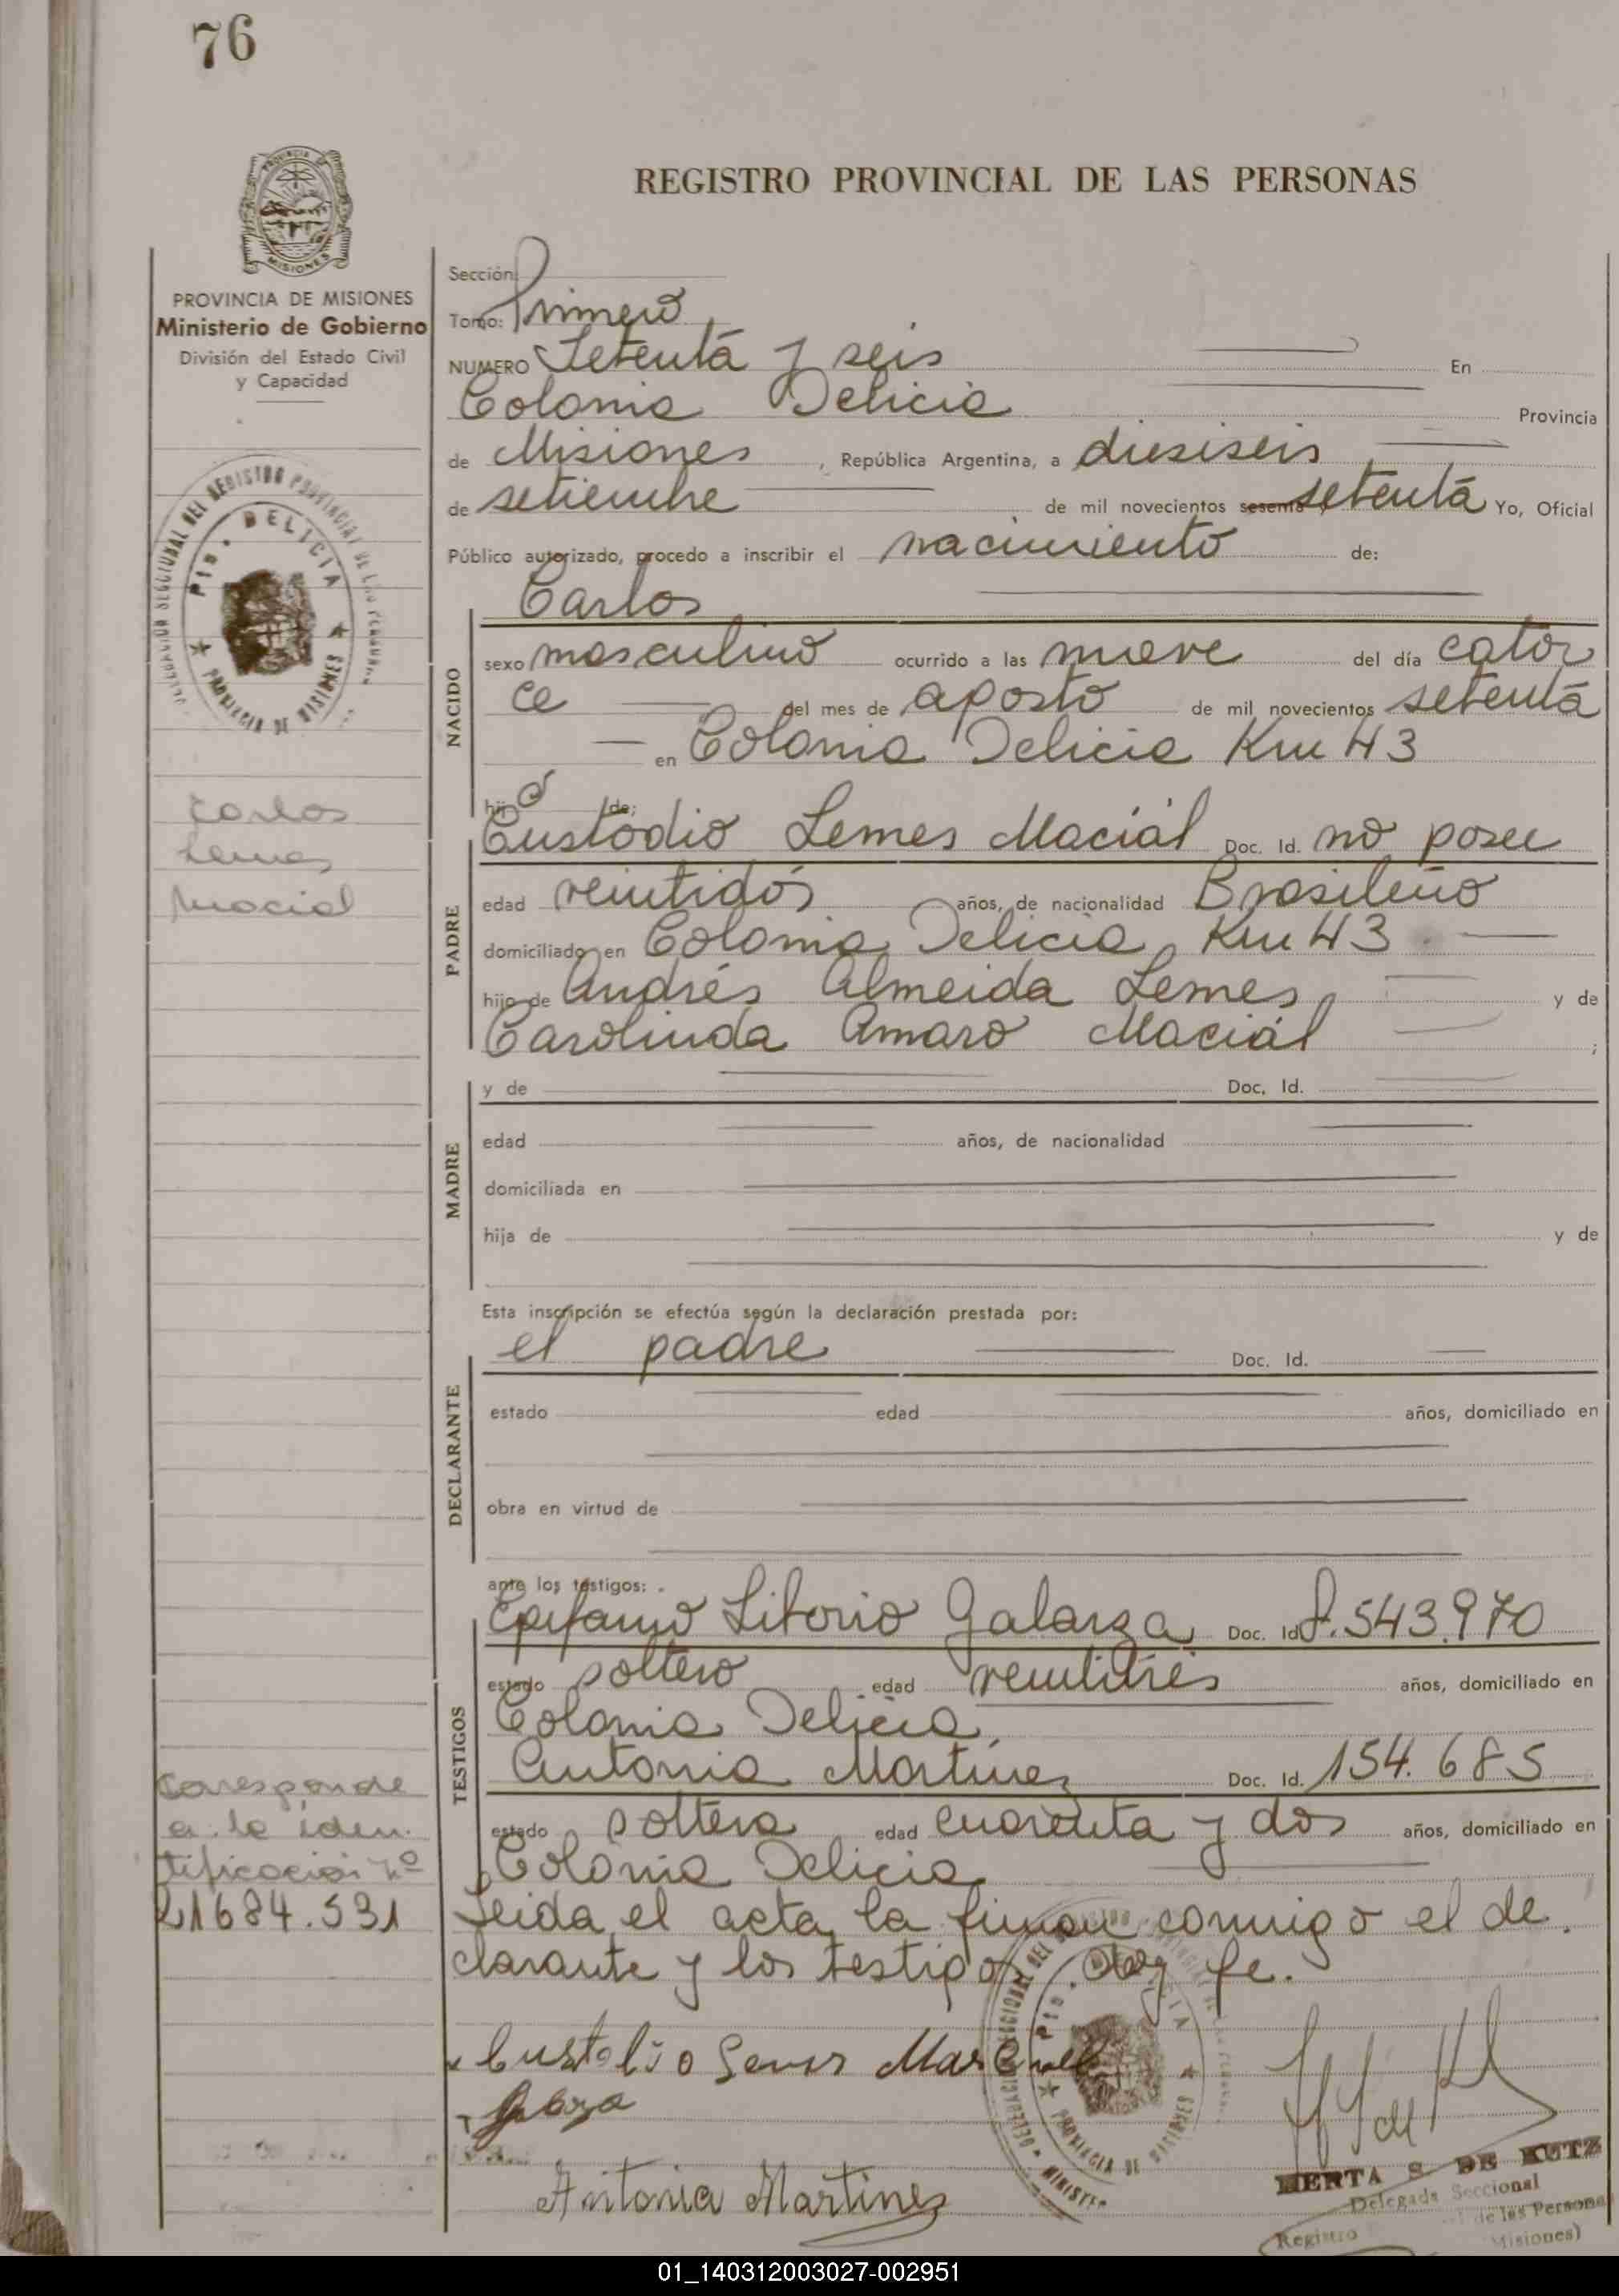 76
REGISTRO PROVINCIAL DE LAS PERSONAS
PROVINCIA
MISIONES
PROVINCIA DE MISIONES
Ministerio de Gobierno
División del Estado Civil
y Capacidad
Sección:
Tomo: Primero
NUMERO Setenta y seis En
Colonia Delicia Provincia
de Misiones, República Argentina, a diesiseis
de setiembre de mil novecientos sesenta setenta Yo, Oficial
Público autorizado, procedo a inscribir el nacimiento de:
DELEGACION SECCIONAL DEL REGISTRO PROVINCIAL DE LAS PERSONAS
Pto. DELICIA
PROVINCIA DE MISIONES
NACIDO
Carlos
sexo masculino ocurrido a las nueve del día cator
ce del mes de agosto de mil novecientos setenta
en Colonia Delicia Km 43
hijo de:
Carlos
Lemes
Macial
PADRE
Custodio Lemes Maciál Doc. Id. no posee
edad veintidós años, de nacionalidad Brasileño
domiciliado en Colonia Delicia, Km 43
hijo de Andrés Almeida Lemes, y de
Carolinda Amaro Maciál ;
MADRE
y de Doc. Id.
edad años, de nacionalidad
domiciliada en
hija de y de
Esta inscripción se efectúa según la declaración prestada por:
DECLARANTE
el padre Doc. Id.
estado edad años, domiciliado en
obra en virtud de
ante los testigos:
TESTIGOS
Epifanio Litorio Galarza Doc. Id. 8.543.970
estado soltero edad veintitrés años, domiciliado en
Colonia Delicia,
Antonia Martínez Doc. Id. 154.685
estado soltera edad cuarenta y dos años, domiciliado en
Colonia Delicia,
Coresponde
a la iden.
tificación Nº
21684.531
Leida el acta, la firman conmigo el de.
clarante y los testigos, doy fe.
Custodio
Antonia Martinez
Pto. DELICIA
PROVINCIA DE MISIONES
HERTA S. DE KUTZ
Delegada Seccional
Registro de las Personas
Misiones)
01_140312003027-002951